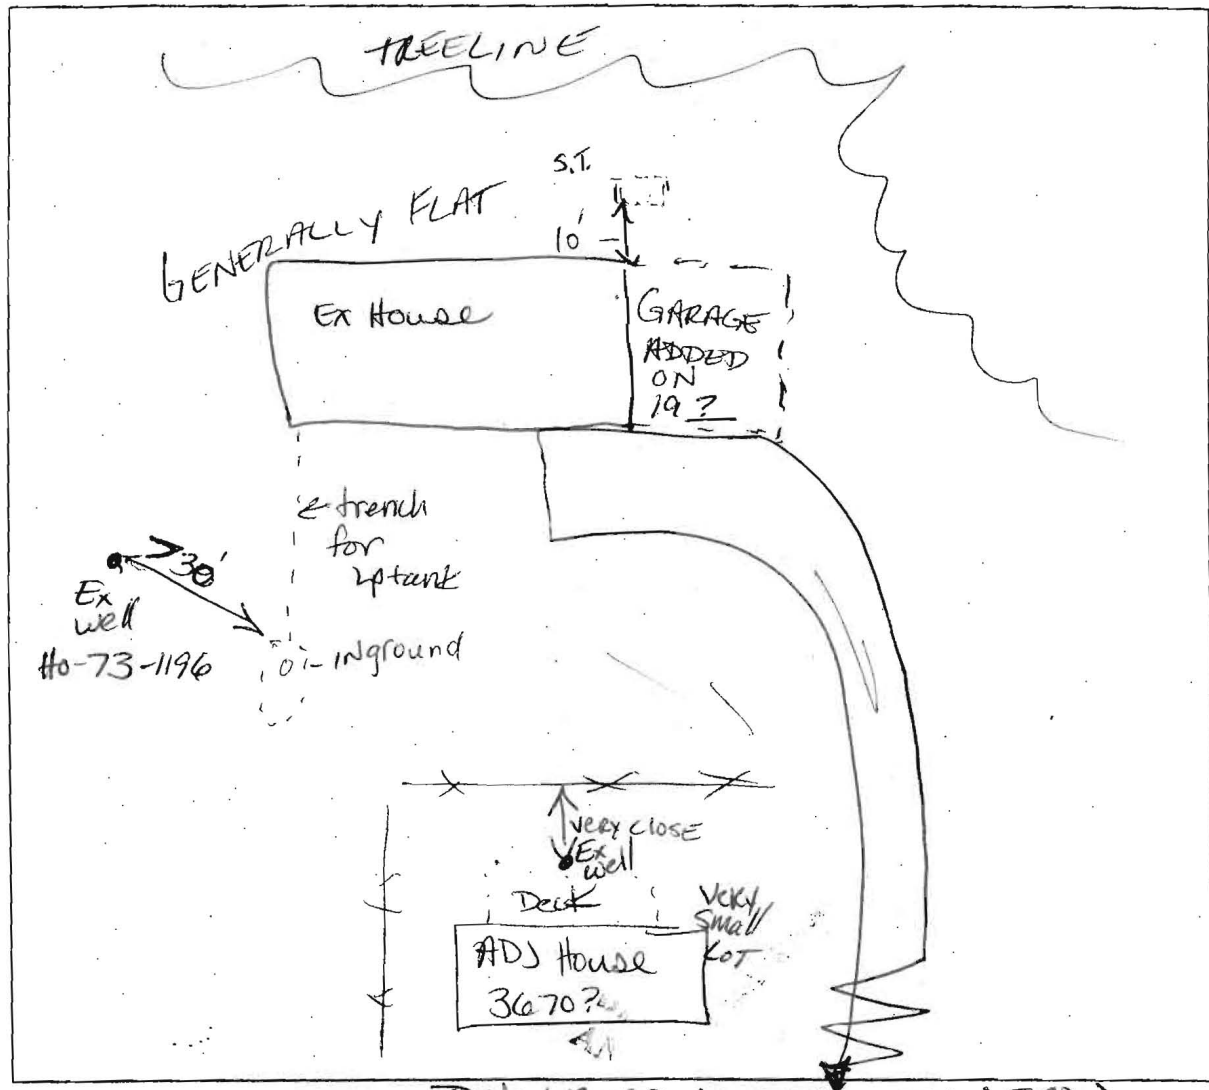 TREELINE
S.T.
10'
GENERALLY FLAT
Ex House
GARAGE
ADDED
ON
19 ?
← trench
for
lp tank
>30'
Ex
well
Ho-73-1196
inground
very close
Ex
well
Deck
Very
Small
LOT
ADJ House
3670?